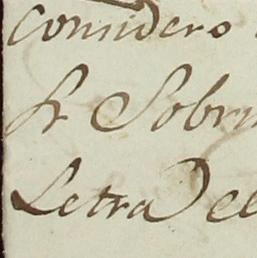 Considero
Sr Sobri
Letra De